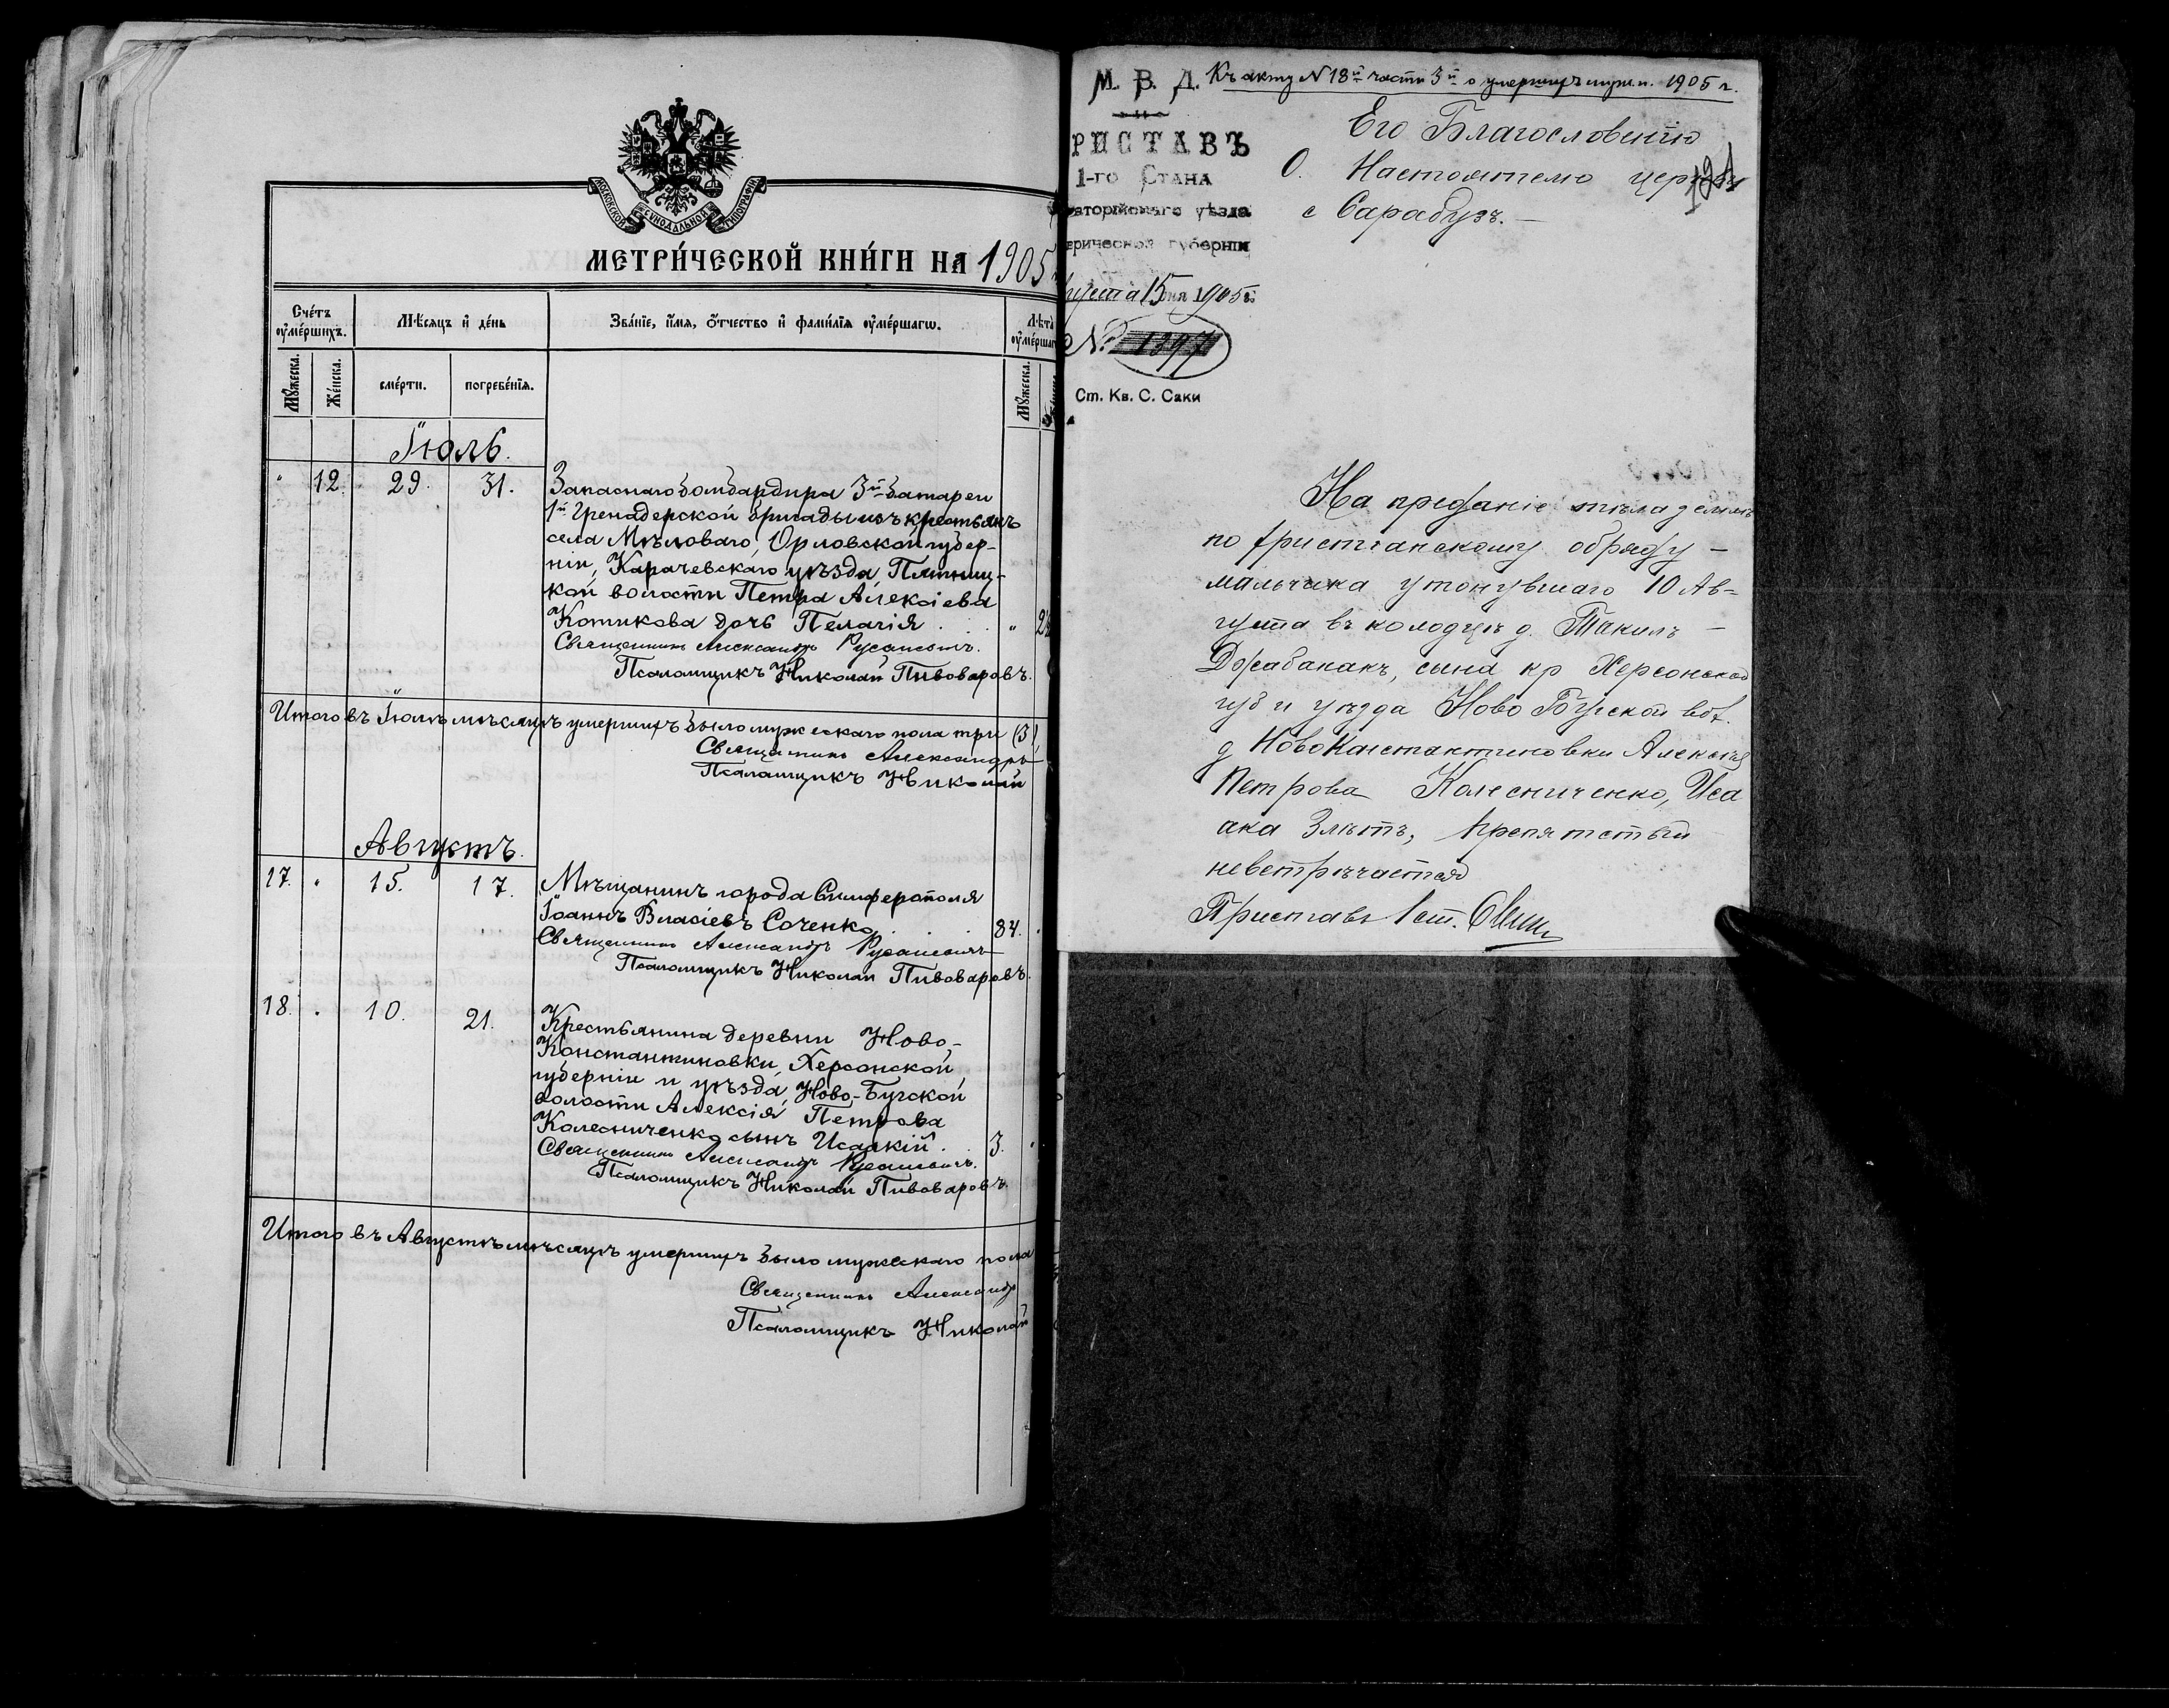 МОСКОВСКОЙ СѴНОДАЛЬНОЙ ТИПОГРАФІИ
МЕТРИ́ЧЕСКОЙ КНИ́ГИ НА 1905
Сче́тъ ᲂу҆ме́ршихъ.
Мѣ́сяцъ и҆ де́нь
Зва́нїе, и҆́мѧ, ѻ҆́тчество и҆ фами́лїѧ ᲂу҆ме́ршагѡ.
Лѣ́тѣ
Мꙋ́жеска.
Же́нска.
сме́рти.
погребе́нїѧ.
Мꙋ́жеска.
Іюль.
" 12. 29. 31.
Запаснаго бомбардира 3й батареи
1й Гренадерской бригады изъ крестьянъ
села Мѣловаго, Орловской губер-
ніи, Карачевскаго уѣзда, Пятниц-
кой волости Петра Алексіева
Котикова дочь Пелагія . . "
Священникъ Александръ
Псаломщикъ Николай Пивоваровъ.
Итого въ Іюлѣ мѣсяцѣ умершихъ было мужескаго пола три (3)
Священникъ Александръ
Псаломщикъ Николай
Августъ.
17. " 15. 17.
Мѣщанинъ города Симферополя
Іоаннъ Власіевъ Соченко . . 84.
Священникъ Александръ
Псаломщикъ Николай Пивоваровъ.
18. " 10. 21.
Крестьянина деревни Ново-
Константиновки, Херсонской
губерніи и уѣзда, Ново-Бугской
волости Алексія Петрова
Колесниченко сынъ Исаакій . . 3.
Священникъ Александръ
Псаломщикъ Николай Пивоваровъ.
Итого въ Августѣ мѣсяцѣ умершихъ было мужескаго пола
Священникъ Александръ
Псаломщикъ Николай
Къ акту N 18й части 3й о умершихъ муж. п. 1905 г.
М. В. Д.
РИСТАВЪ
1-го Стана
аторійскаго уѣзда
врической губерніи
густа 15 дня 1905 г.
№ 1397
Ст. Кв. С. Саки
Его Благословенію
О. Настоятелю церкви
с Сарабузъ. —
124
На преданіе тѣла землѣ
по христіанскому обряду —
мальчика утонувшаго 10 Ав-
густа въ колодцѣ д. Такилъ —
Джабанакъ, сына кр Херсонской
губ и уѣзда Ново Бугской вол.
д Ново Константиновки Алексѣя
Петрова Колесниченко, Иса
ака 3 лѣтъ, препятствій
невстрѣчается
Приставъ 1 ст.